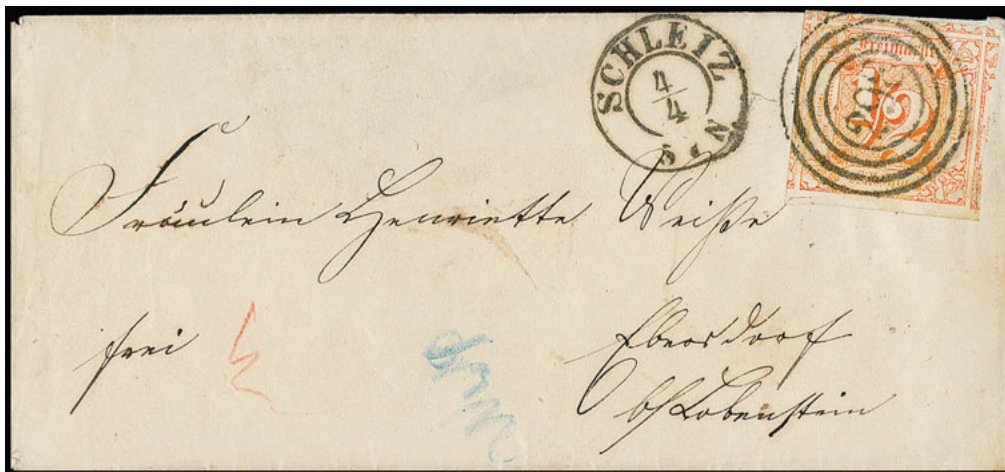 SCHLEIZ
4
4
5 - N
Freimarke
1/2
Fräulein Henriette Weiße
frei
Ebersdorf
b/Lobenstein